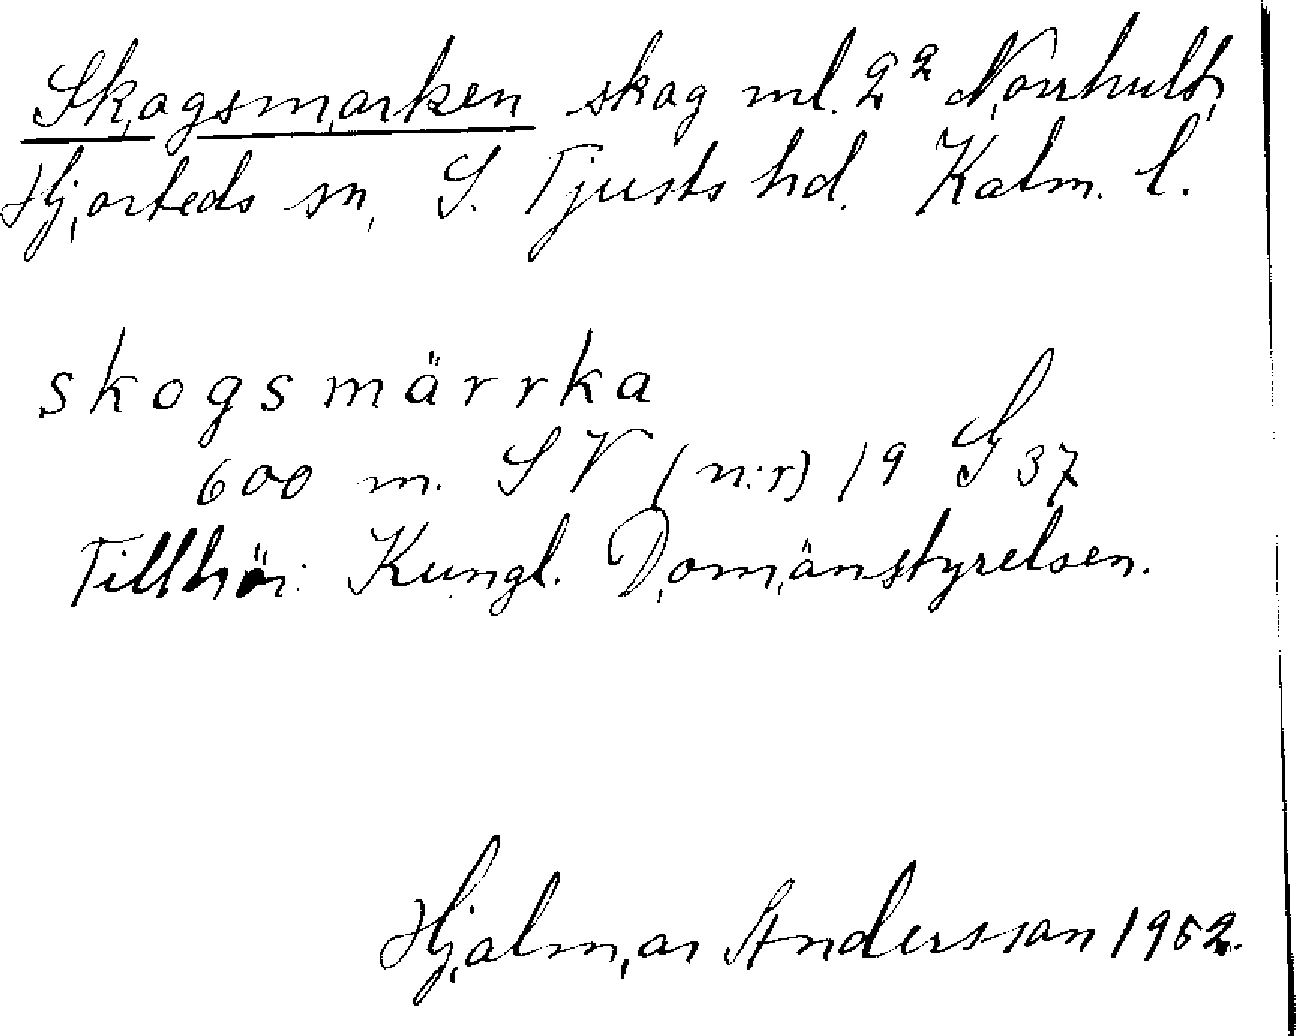 Skogsmarken skog ml. 2² Norrhult,
Hjorteds sn, S. Tjusts hd. Kalm. l.
skogsmärrka
600 m. SV (n:r) 19 S 37
Tillhör: Kungl. Domänstyrelsen.
Hjalmar Andersson 1952.